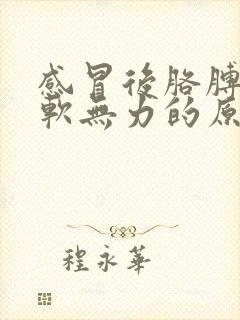 感冒後胳膊
軟無力的原
程永華